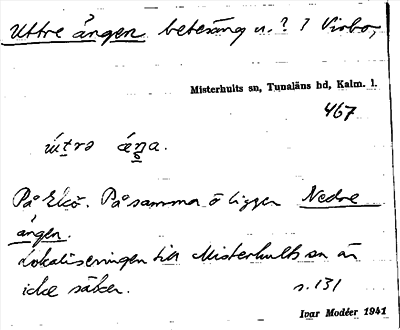 Uttre ängen betesäng n. ? ? Virbo,
Misterhults sn, Tunaläns hd, Kalm. l.
467
út̠rə áŋa.
På Ekö. På samma ö ligger Nedre
ängen.
Lokaliseringen till Misterhults sn är
icke säker. s. 131
Ivar Modéer 1941